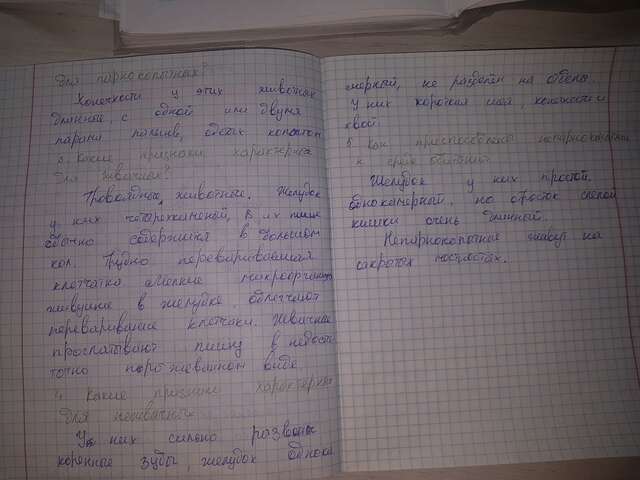 для парнокопытных?
Конечности у этих животных
длинные, с одной или двумя
парами пальцев, одетых копытом
3. Какие признаки характерны
для жвачных?
Травоядные животные. Желудок
у них четырехкамерный, в их пище
обычно содержится в большом
кол. трудно перевариваемая
клетчатка. Мелкие микроорганизмы
живущие в желудке облегчают
переваривание клетчатки. Жвачные
проглатывают пищу в недоста
точно пережеванном виде
4. Какие признаки характерны
для нежвачных
У них сильно развиты
коренные зубы, желудок однока
мерный, не разделен на отделы.
У них короткая шея, конечности и
хвост.
5 Как приспособлены непарнокопытные
к среде обитания?
Желудок у них простой,
однокамерный, но отросток слепой
кишки очень длинный.
Непарнокопытные живут на